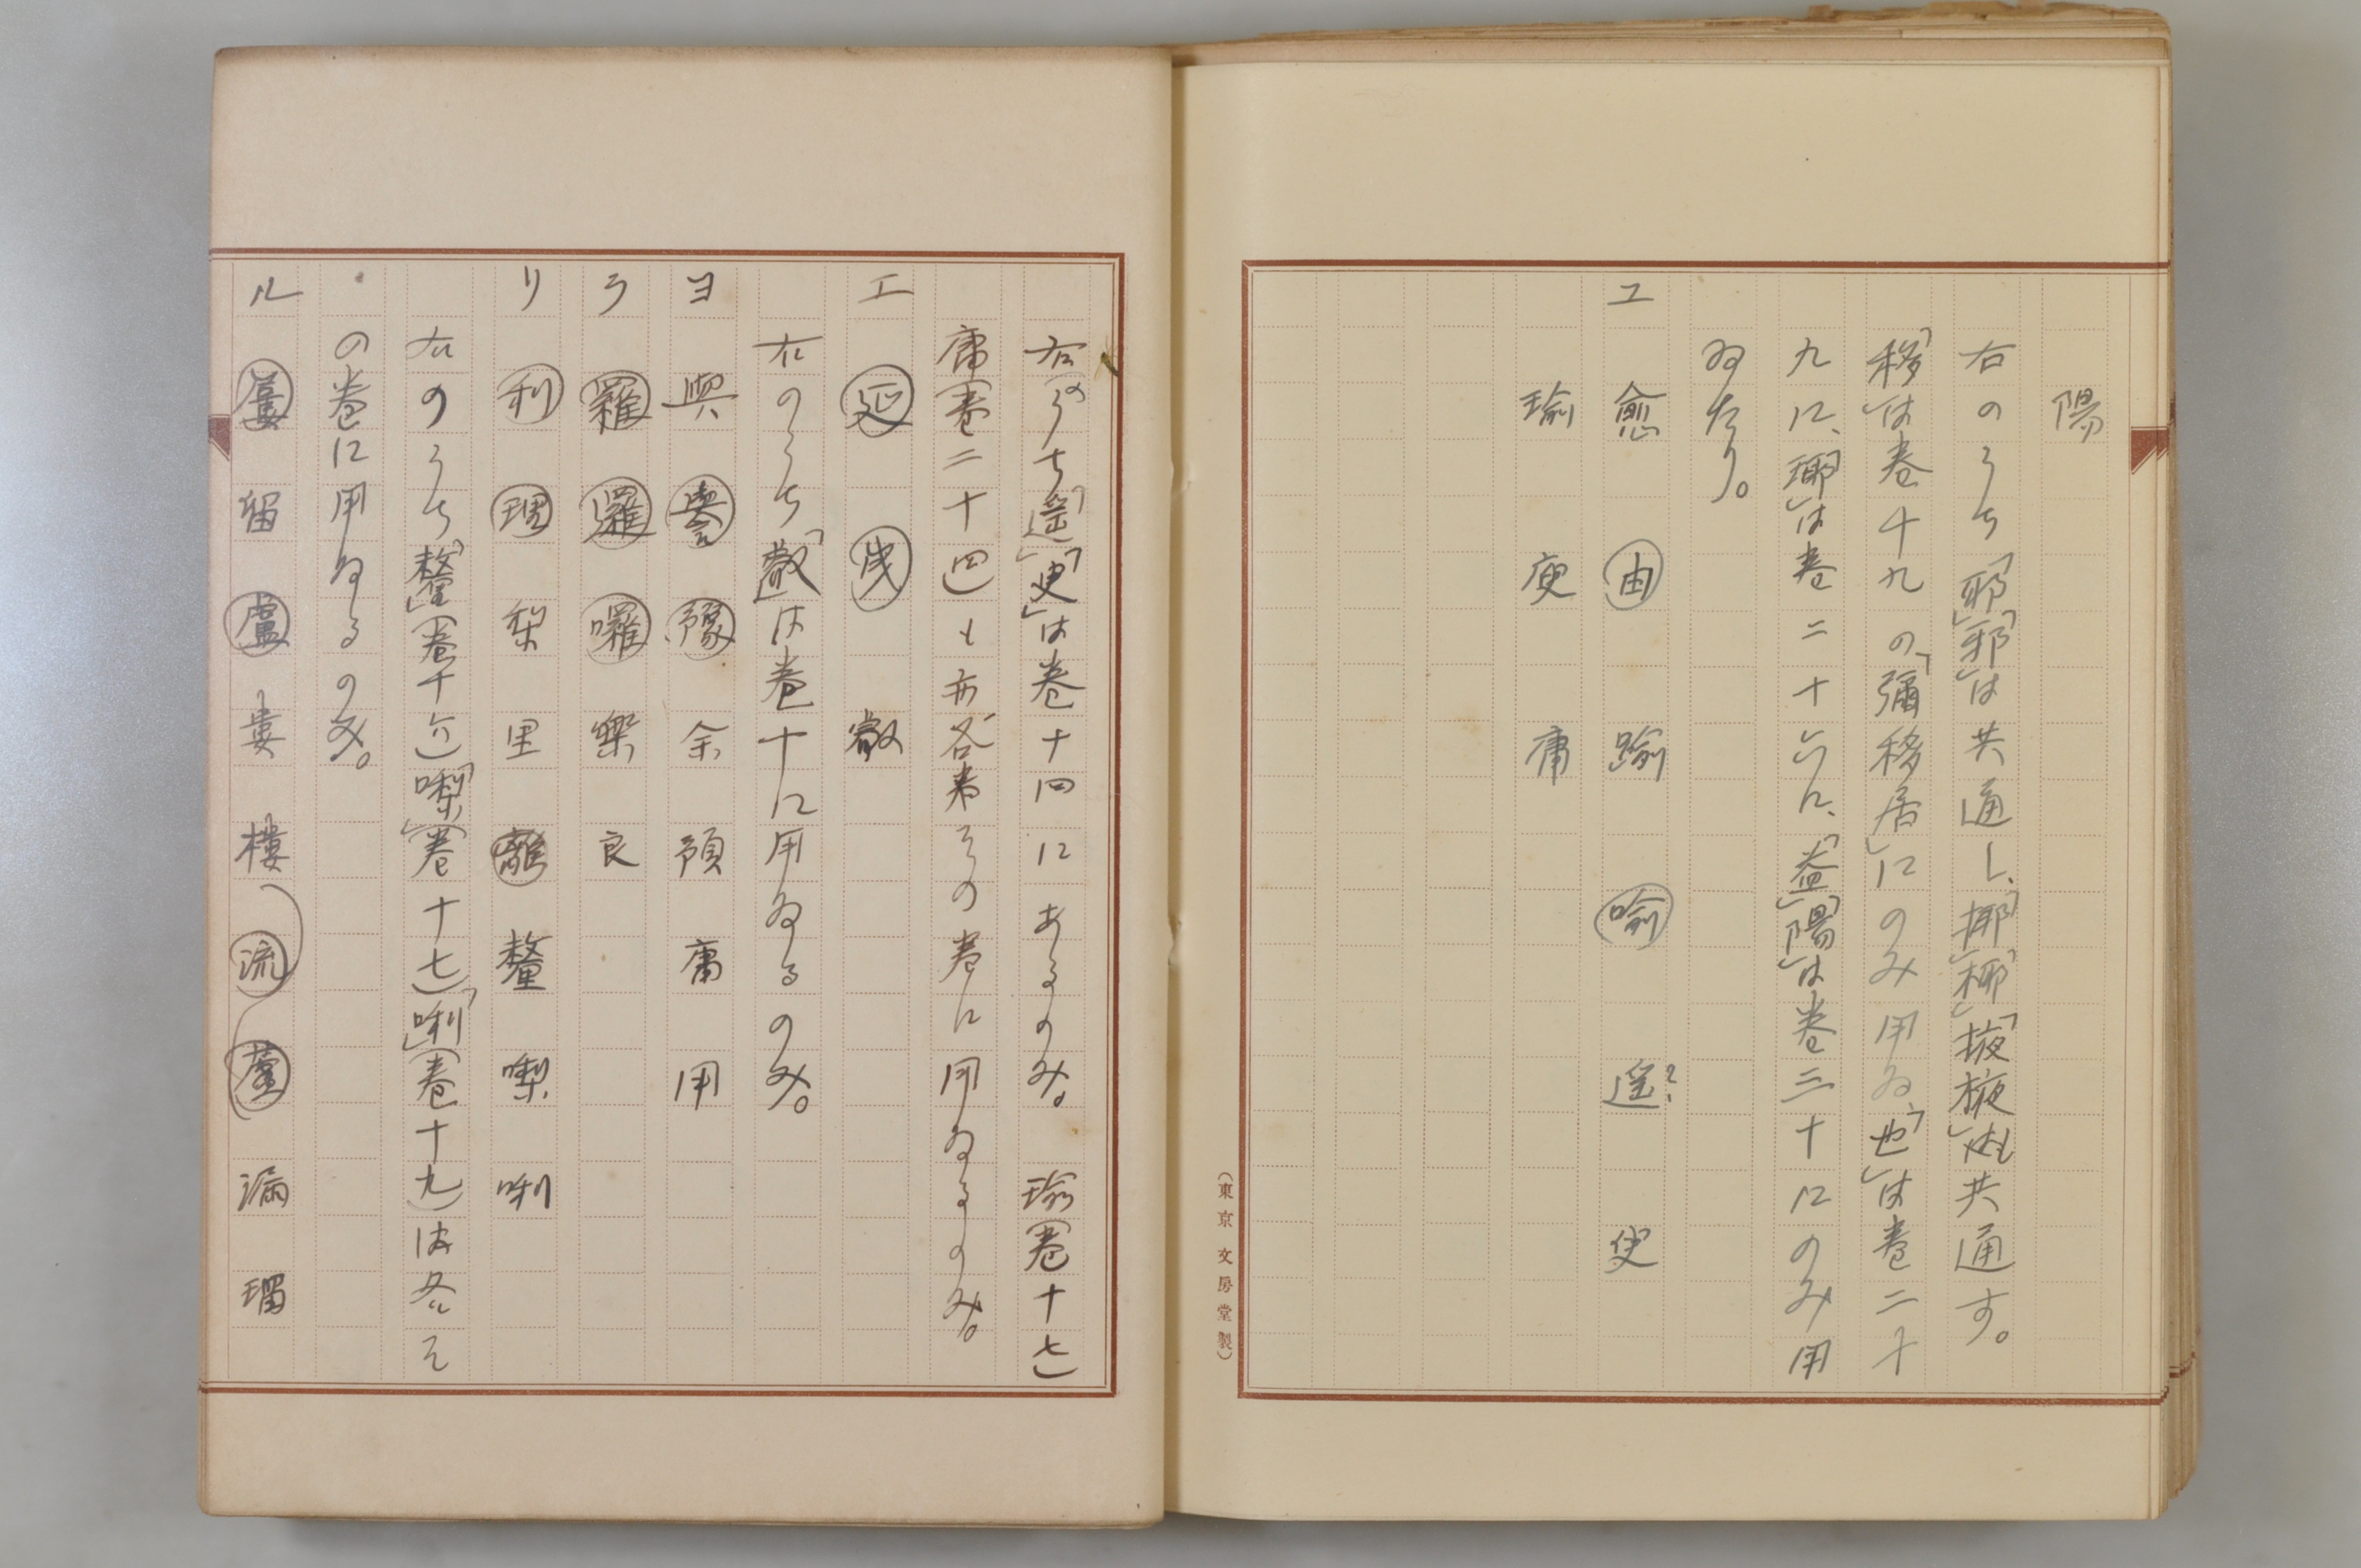 陽
右のうち「耶」「邪」は共通し、「揶」「椰」「掖」「棭」も共通す。
「移」は巻十九の「彌移居」にのみ用ゐ、「也」は巻二十
九に、「瑘」は巻二十六に、「益」「陽」は巻三十にのみ用
ゐたり。
ユ 愈 由 踰 喩 遥? 臾
瑜 庾 庸
(東京 文房堂製)
右のうち「遥」「臾」は巻十四にあるのみ。 瑜(巻十七)
庸(巻二十四)も亦各その巻に用ゐるのみ。
エ 延 曳 叡
右のうち「叡」は巻十に用ゐるのみ。
ヨ 與 譽 豫 余 預 庸 用
ラ 羅 邏 囉 樂 良
リ 利 理 梨 里 離 釐 㗚 唎
右のうち「釐」(巻十六)「㗚」(巻十七)「唎」(巻十九)は各そ
の巻に用ゐるのみ。
ル 蔞 留 盧 婁 樓 流 蘆 漏 瑠